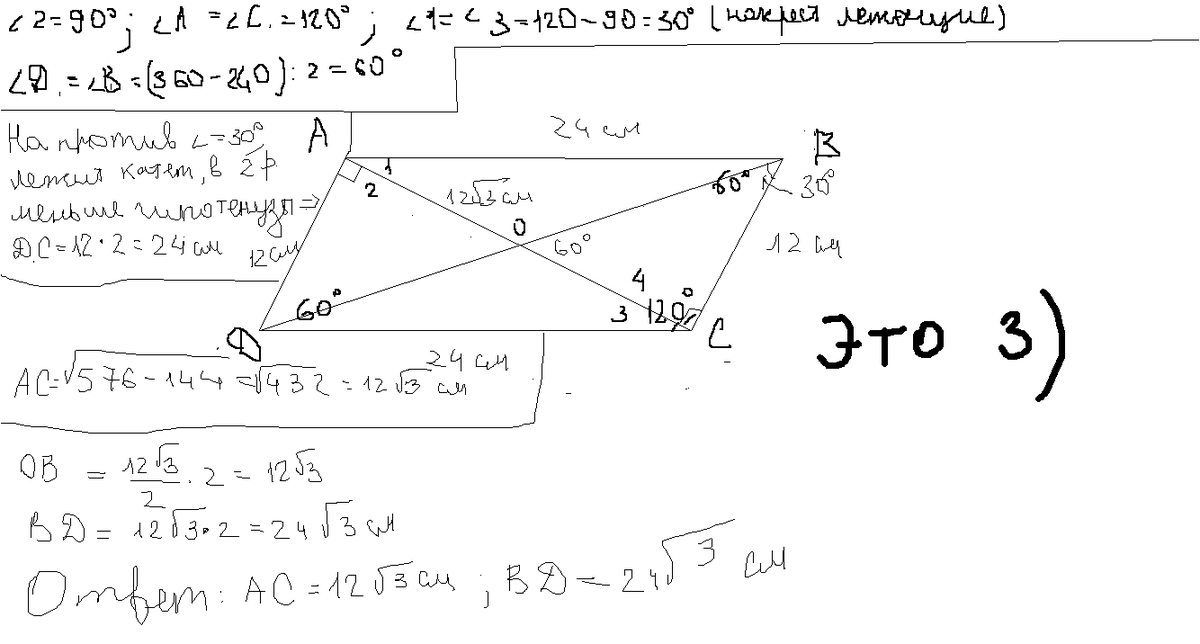 ∠2=90°; ∠A =∠C.=120°; ∠1=∠3=120-90=30° (накрест лежащие)
∠D.=∠B=(360-240):2=60°
На против ∠=30°,
лежит катет, в 2 р.
меньше гипотенузы =>
D.C=12·2=24 см
A
24 см
B
1
2
12√3 см
60°
30°
O
60°
12 см
12 см
4
60°
3
120°
D
C
24 см
Это 3)
AC=√576-144=√432=12√3 см
OB = 12√3/2 · 2 = 12√3
BD = 12√3·2=24√3 см
Ответ: AC=12√3 см; BD=24√3 см